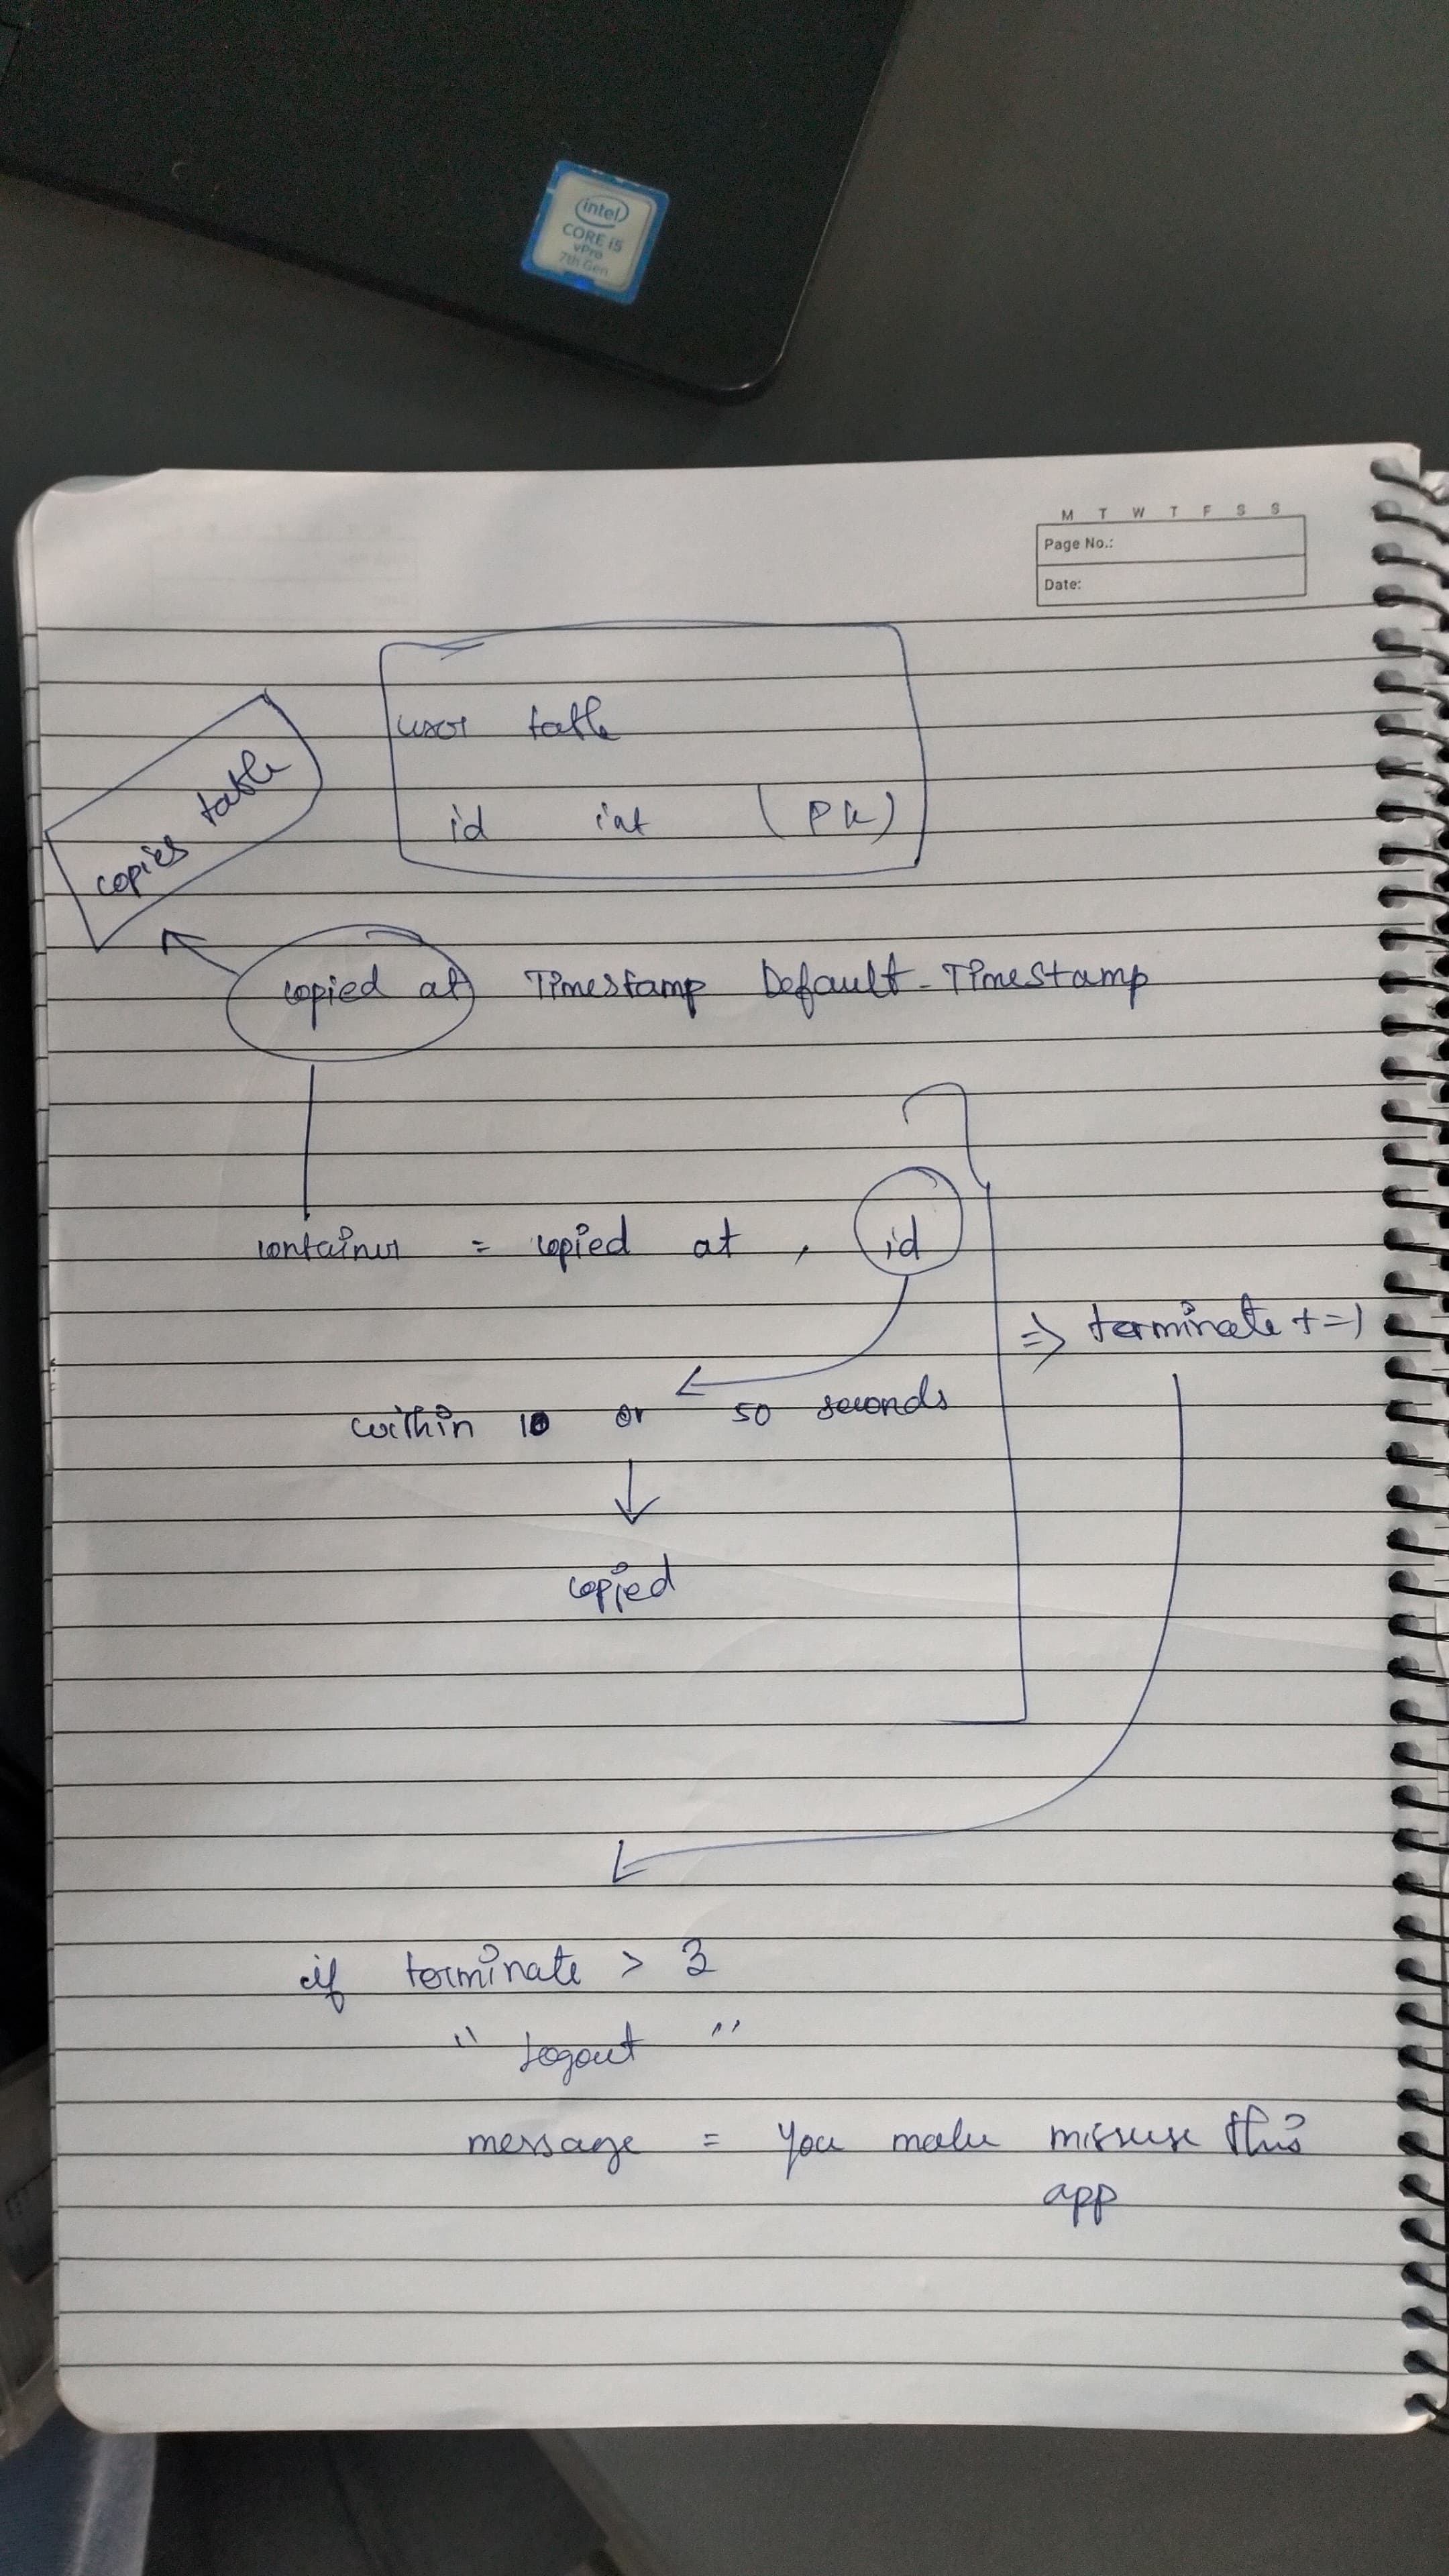 intel
CORE i5
vPro
7th Gen
M T W T F S S
Page No.:
Date:
user table
id int (PK)
copies table
copied at Timestamp Default-Timestamp
container = copied at , id
=> terminate +=1
within 10 or 50 seconds
copied
if terminate > 3
" Logout "
message = you make misuse this
app